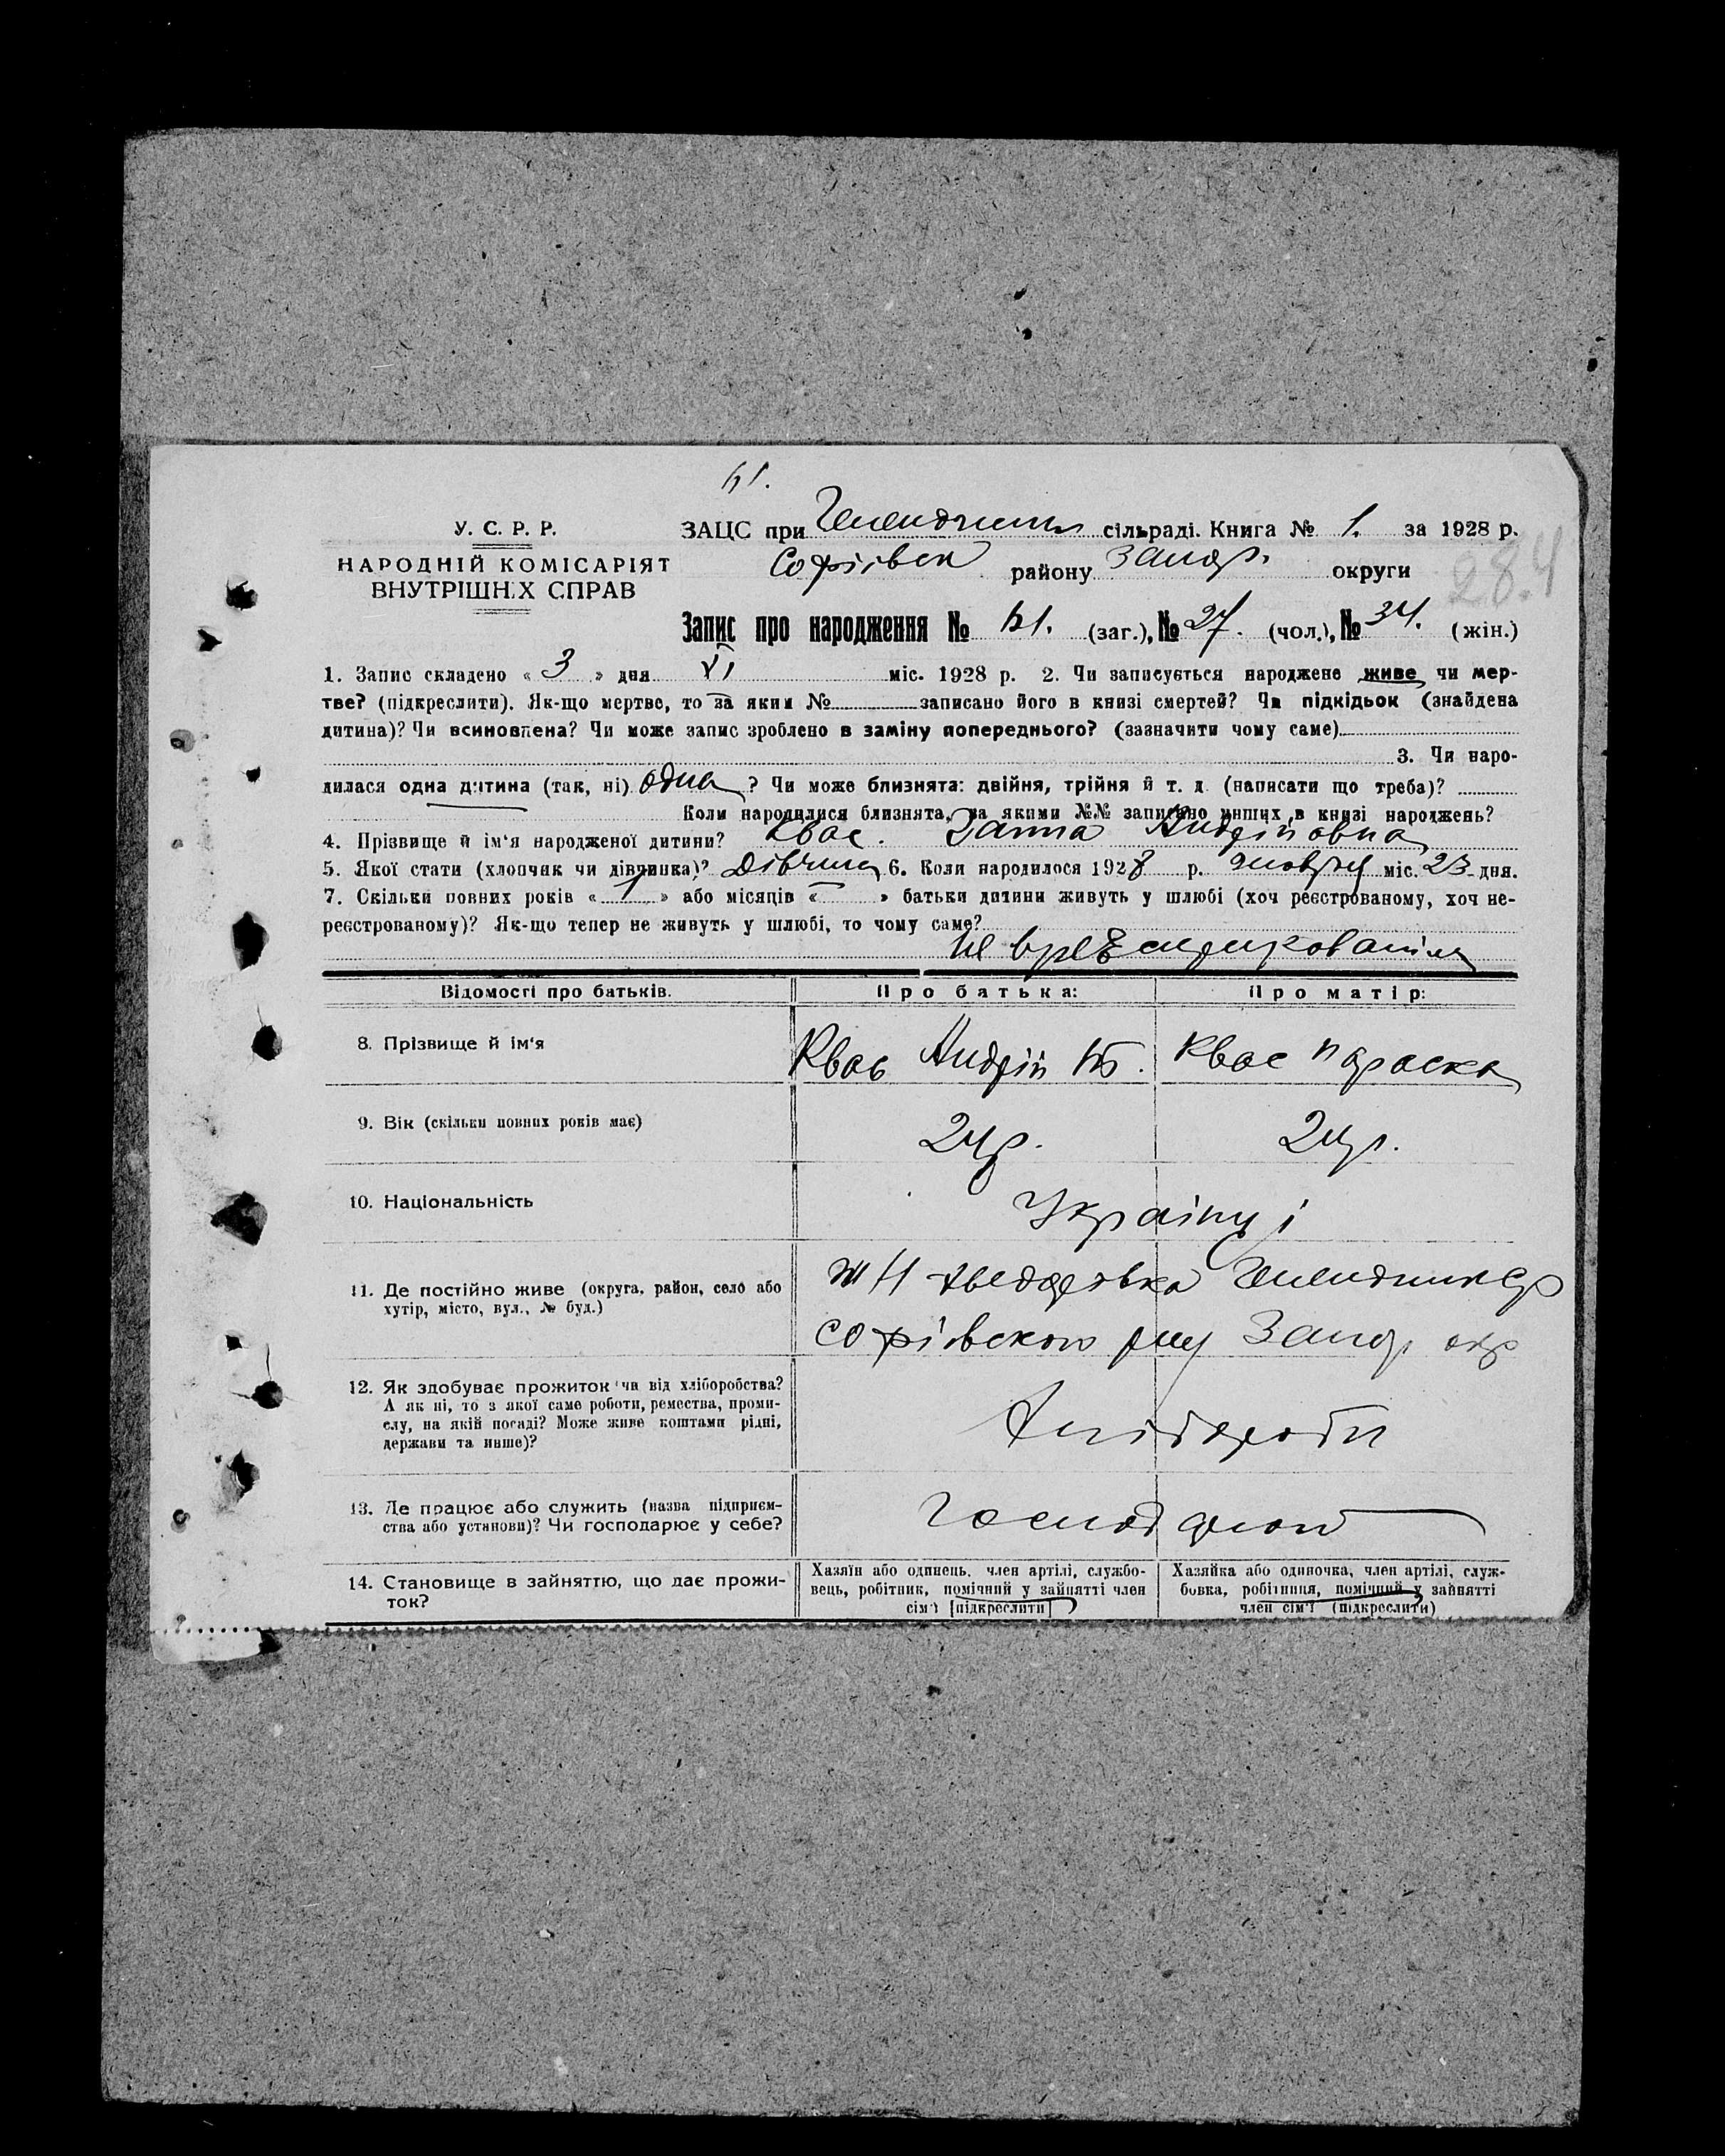 61.
У. С. Р. Р.
НАРОДНІЙ КОМІСАРІЯТ
ВНУТРІШНІХ СПРАВ
ЗАЦС при сільраді. Книга № 1. за 1928 р.
Софіївск району Запор. округи
28.4
Запис про народження № 61. (заг.), № 27. (чол.), № 34. (жін.)
1. Запис складено « 3 » дня XI міс. 1928 р. 2. Чи записується народжене живе чи мер-
тве? (підкреслити). Як-що мертве, то за яким № записано його в книзі смертей? Чи підкідьок (знайдена
дитина)? Чи всиновлена? Чи може запис зроблено в заміну попереднього? (зазначити чому саме)
3. Чи наро-
дилася одна дитина (так, ні) одна ? Чи може близнята: двійня, трійня й т. д. (написати що треба)?
Коли народилися близнята, за якими №№ записано инших в книзі народжень?
4. Прізвище й ім'я народженої дитини? Квас. Ганна Андрійовна
5. Якої стати (хлопчик чи дівчинка)? Дівчина 6. Коли народилося 1928 р. жовтня міс. 23 дня.
7. Скільки повних років « 1 » або місяців « — » батьки дитини живуть у шлюбі (хоч реєстрованому, хоч не-
реєстрованому)? Як-що тепер не живуть у шлюбі, то чому саме?
Відомості про батьків. Про батька: Про матір:
8. Прізвище й ім'я Квас Андрій Квас Параска
9. Вік (скільки повних років має) 24р. 24р.
10. Національність Українці
11. Де постійно живе (округа, район, село або
хутір, місто, вул., № буд.)
Софіївского р-ну Запор. окр
12. Як здобуває прожиток чи від хліборобства?
А як ні, то з якої саме роботи, ремества, проми-
слу, на якій посаді? Може живе коштами рідні,
держави та инше)?
Хлібороби
13. Де працює або служить (назва підприєм-
ства або установи)? Чи господарює у себе?
14. Становище в зайняттю, що дає прожи-
ток?
Хазяїн або одинець, член артілі, службо-
вець, робітник, помічний у зайнятті член
сім'ї [підкреслити]
Хазяйка або одиночка, член артілі, служ-
бовка, робітниця, помічний у зайнятті
член сім'ї (підкреслити)